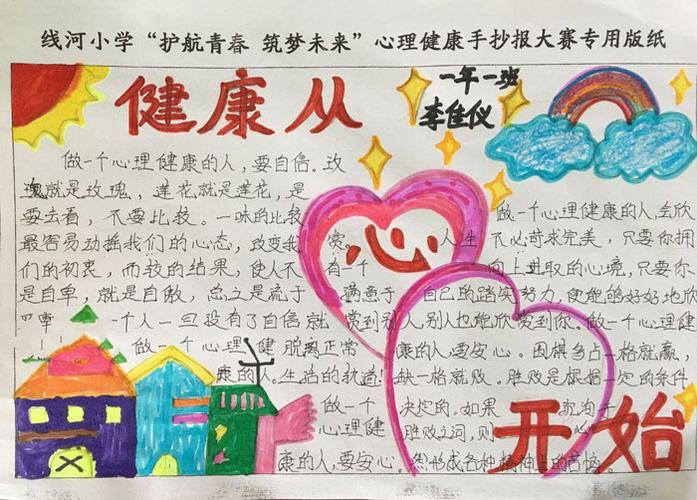 线河小学“护航青春 筑梦未来”心理健康手抄报大赛专用版纸
健康从心开始
一年一班
李佳仪
做一个心理健康的人,要自信。玫
瑰就是玫瑰,莲花就是莲花,是
要去看,不要比较。一味的比较
最容易动摇我们的心态,改变我
们的初衷,而较的结果,使人不
是自卑,就是自傲,总之是流于
一个人一旦没有了自信就
做一个心理健
康的人。
做一个心理健康的人,会欣
赏。人生不必苛求完美,只要你拥
有一个向上进取的心境,只要你
满意于自己的踏实努力,便能够好好地欣
赏到别人,别人也能欣赏到你。做一个心理健
脱离正常
生活的轨道!
康的人,要安心。围棋多占一格就赢,
缺一格就败。胜败是根据一定的条件
决定的。如果
胜败之词,则
做一个
心理健
康的人,要安心。